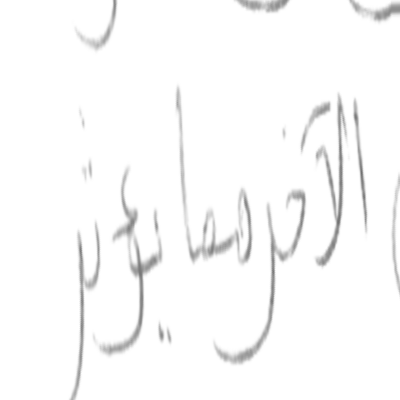 الآخر مما يؤثر